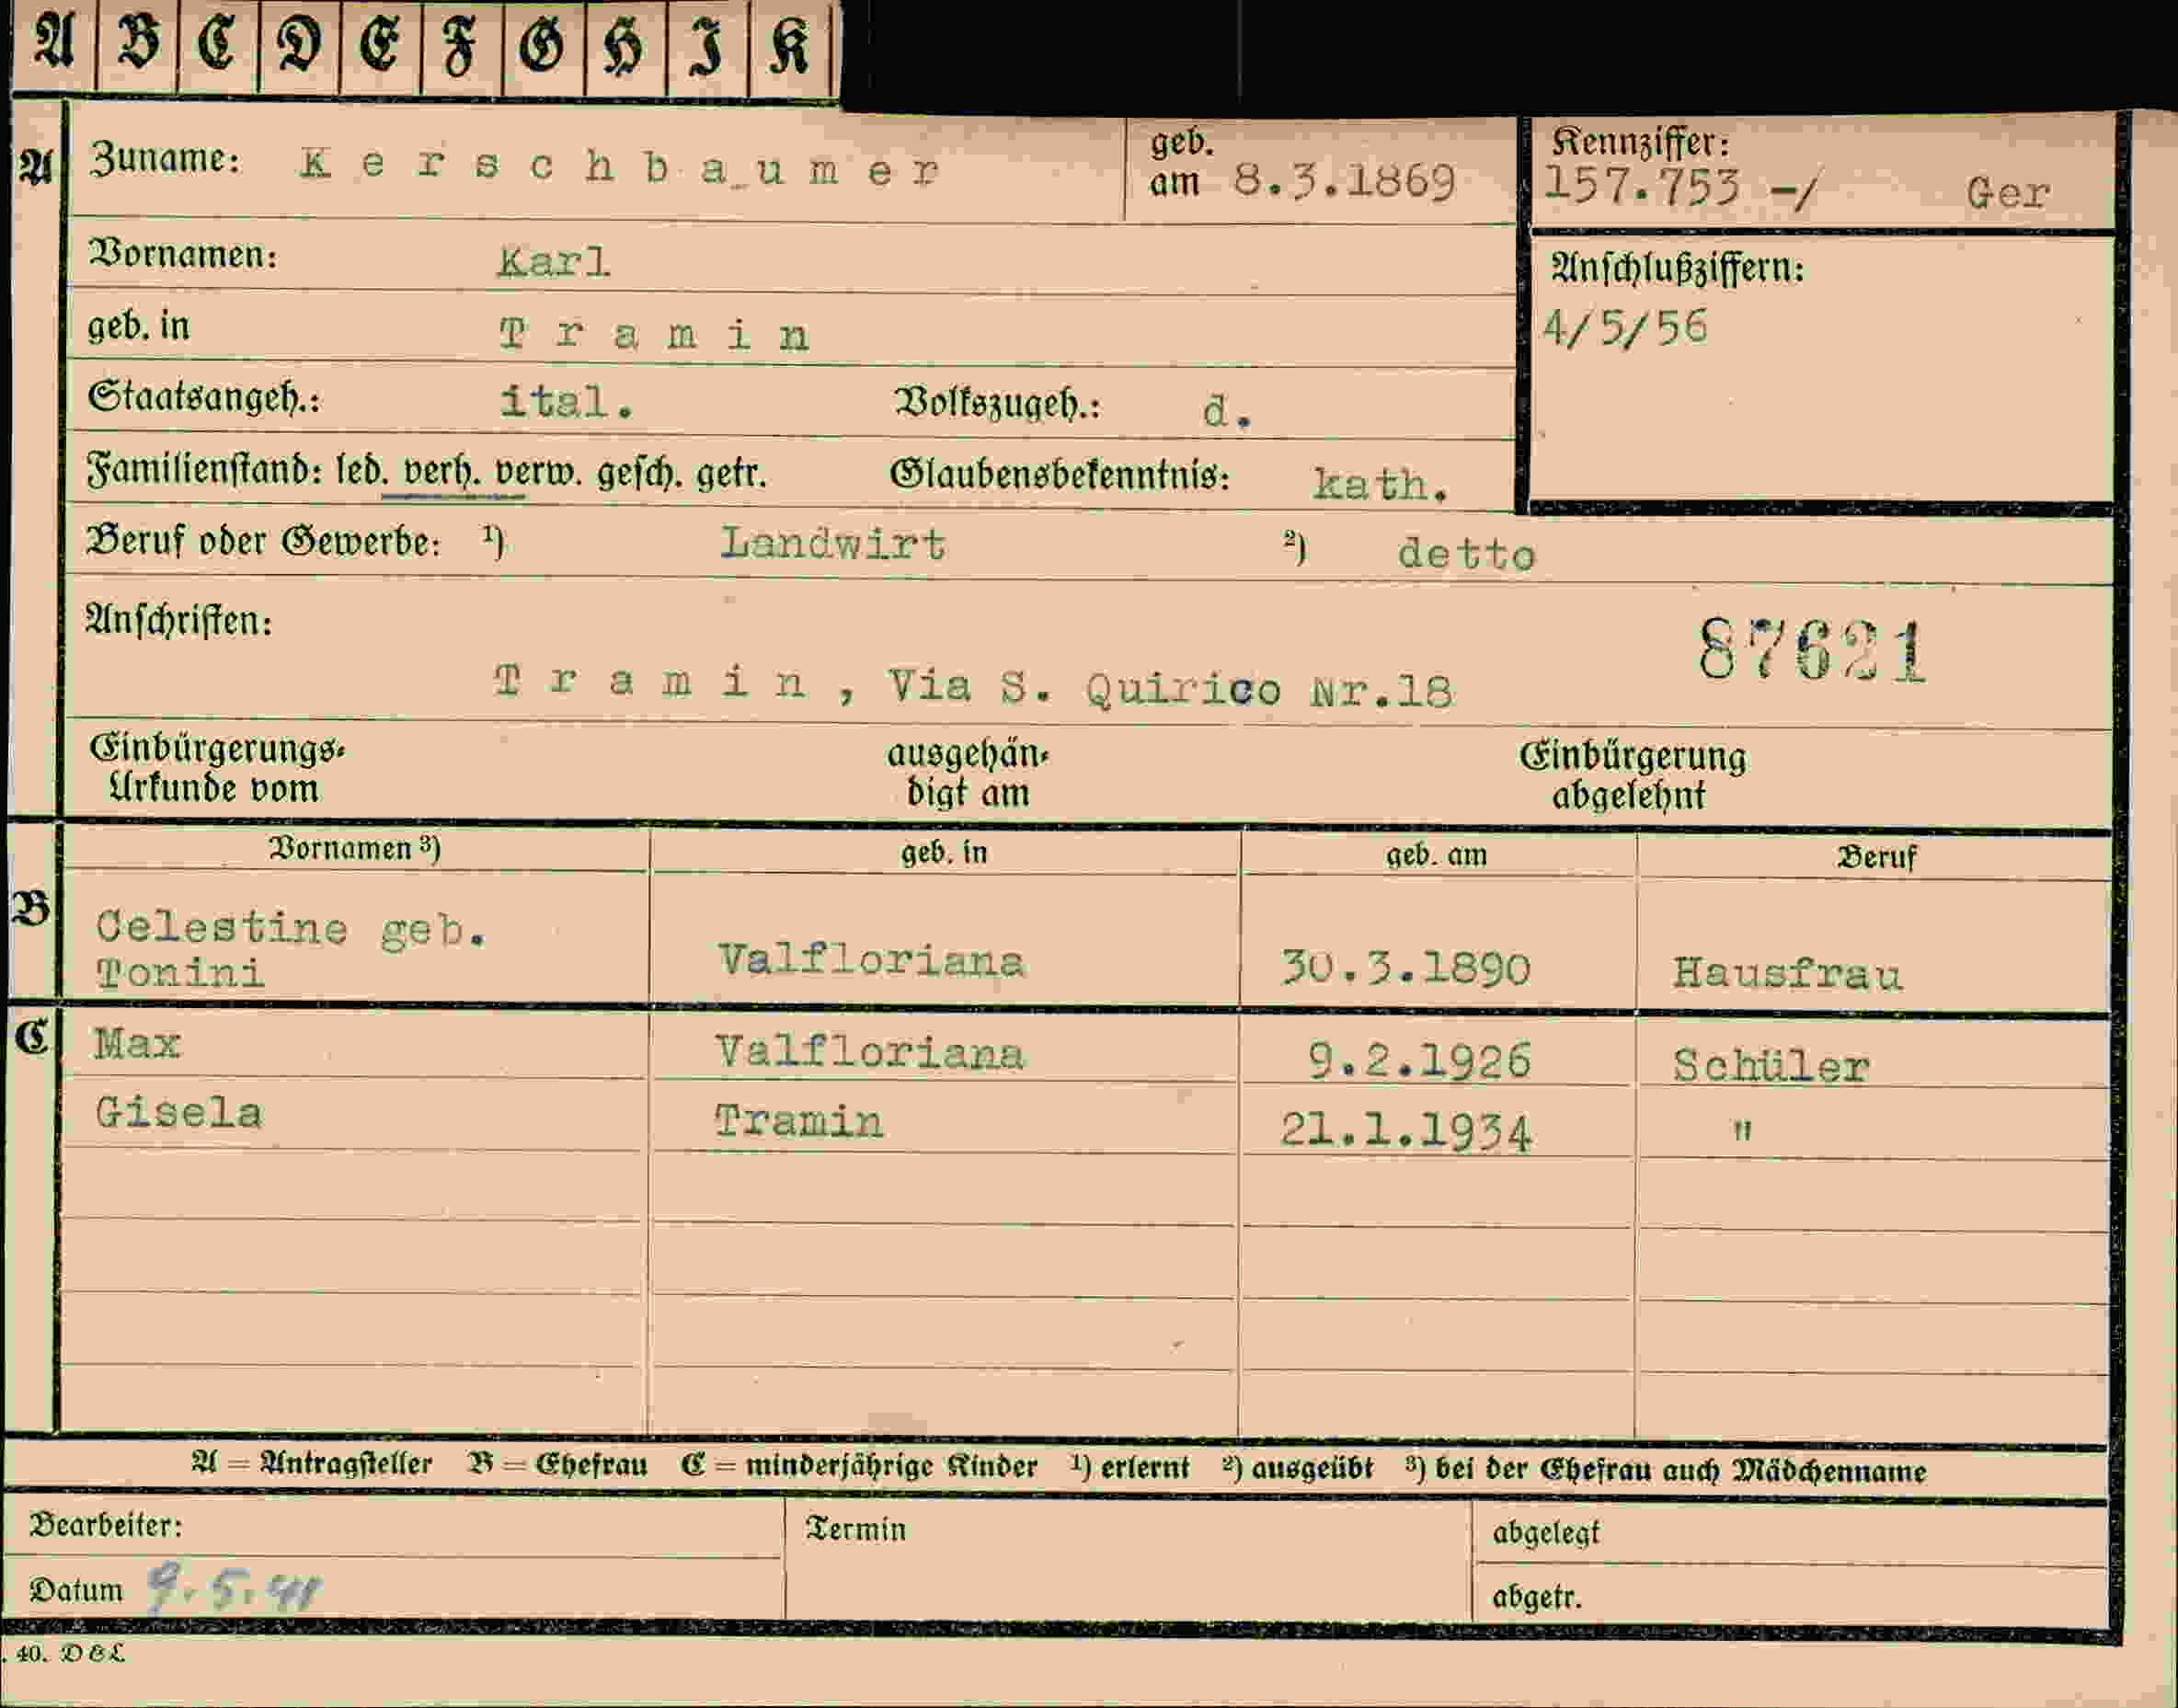 A B C D E F G H I K
A Zuname: Kerschbaumer geb. am 8.3.1869 Kennziffer: 157.753 -/ Ger
Vornamen: Karl Anschlußziffern:
geb. in Tramin 4/5/56
Staatsangeh.: ital. Volkszugeh.: d.
Familienstand: led. verh. verw. gesch. getr. Glaubensbekenntnis: kath.
Beruf oder Gewerbe: 1) Landwirt 2) detto
Anschriften: 87621
Tramin, Via S. Quirico Nr.18
Einbürgerungs- ausgehän- Einbürgerung
Urkunde vom digt am abgelehnt
Vornamen 3) geb. in geb. am Beruf
B Celestine geb.
Tonini Valfloriana 30.3.1890 Hausfrau
C Max Valfloriana 9.2.1926 Schüler
Gisela Tramin 21.1.1934 "
A = Antragsteller B = Ehefrau C = minderjährige Kinder 1) erlernt 2) ausgeübt 3) bei der Ehefrau auch Mädchenname
Bearbeiter: Termin abgelegt
Datum 9.5.41 abgetr.
. 40. D&L